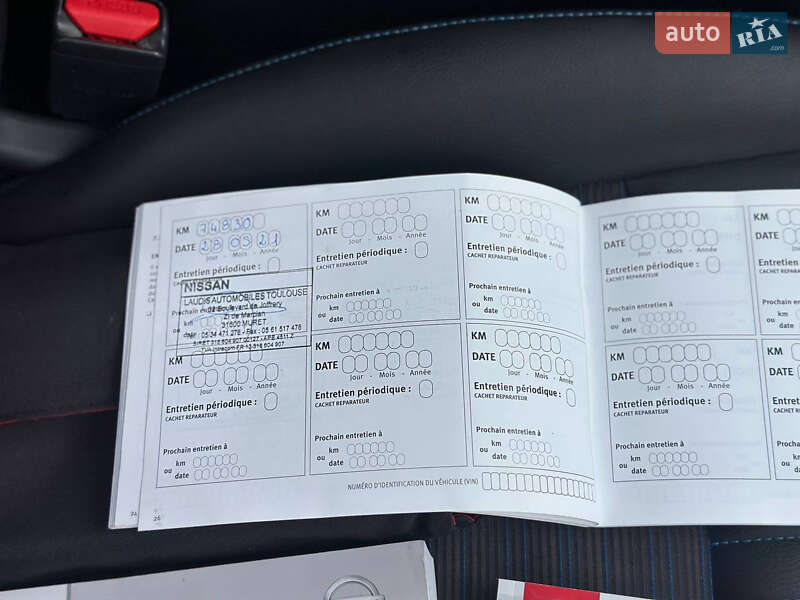 auto RIA .com
KM 74830
DATE 28 05 21
Jour - Mois - Année
Entretien périodique :
NISSAN
LAUDIS AUTOMOBILES TOULOUSE
Boulevard de Joffrery
ZI de Marclan
31600 MURET
Prochain entretien à
ou
KM
DATE
Jour - Mois - Année
Entretien périodique :
CACHET REPARATEUR
Prochain entretien à
km
ou
date
KM
DATE
Jour - Mois - Année
Entretien périodique :
CACHET REPARATEUR
Prochain entretien à
km
ou
date
KM
DATE
Jour - Mois - Année
Entretien périodique :
CACHET REPARATEUR
Prochain entretien à
km
ou
date
KM
DATE
Jour - Mois - Année
Entretien périodique :
CACHET REPARATEUR
KM
DATE
Jour - Mois - Année
Entretien périodique :
CACHET REPARATEUR
Prochain entretien à
km
ou
date
KM
DATE
Jour - Mois - Année
Entretien périodique :
CACHET REPARATEUR
Prochain entretien à
km
ou
date
NUMÉRO D'IDENTIFICATION DU VÉHICULE (VIN)
24
26
KM
DATE
Jour - Mois - Année
Entretien périodique :
CACHET REPARATEUR
Prochain entretien à
km
ou
date
KM
DATE
Jour - Mois - Année
Entretien périodique :
CACHET REPARATEUR
Prochain entretien à
km
ou
date